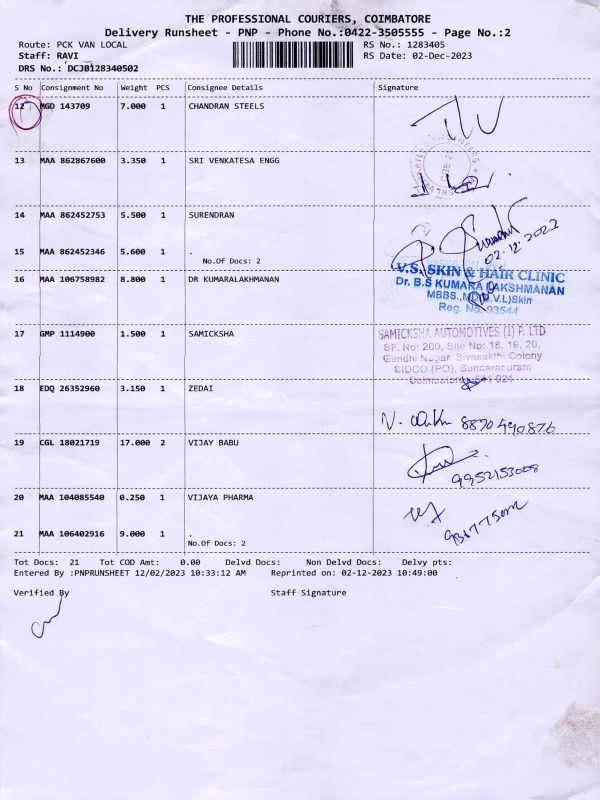 THE PROFESSIONAL COURIERS, COIMBATORE
Delivery Runsheet - PNP - Phone No.:0422-3505555 - Page No.:2
Route: PCK VAN LOCAL RS No.: 1283405
Staff: RAVI RS Date: 02-Dec-2023
DRS No.: DCJB128340502
S No Consignment No Weight PCS Consignee Details Signature
12 MGD 143709 7.000 1 CHANDRAN STEELS
13 MAA 862867600 3.350 1 SRI VENKATESA ENGG
14 MAA 862452753 5.500 1 SURENDRAN
15 MAA 862452346 5.600 1 .
No.Of Docs: 2
02.12.2022
16 MAA 106758982 8.800 1 DR KUMARALAKHMANAN
V.S. SKIN & HAIR CLINIC
Dr. B.S KUMARA LAKSHMANAN
MBBS.,MD(D.V.L)Skin
Reg. No. 93544
17 GMP 1114900 1.500 1 SAMICKSHA
SAMICKSHA AUTOMOTIVES (I) P. LTD
SF. No: 200, Site No: 18, 19, 20,
Gandhi Nagar, Sivasakthi Colony
SIDCO (PO), Sundarapuram
Coimbatore - 641 021
18 EDQ 26352960 3.150 1 ZEDAI
8870490876
19 CGL 18021719 17.000 2 VIJAY BABU
9952153008
20 MAA 104085540 0.250 1 VIJAYA PHARMA
21 MAA 106402916 9.000 1 .
No.Of Docs: 2
Tot Docs: 21 Tot COD Amt: 0.00 Delvd Docs: Non Delvd Docs: Delvy pts:
Entered By :PNPRUNSHEET 12/02/2023 10:33:12 AM Reprinted on: 02-12-2023 10:49:00
Verified By Staff Signature